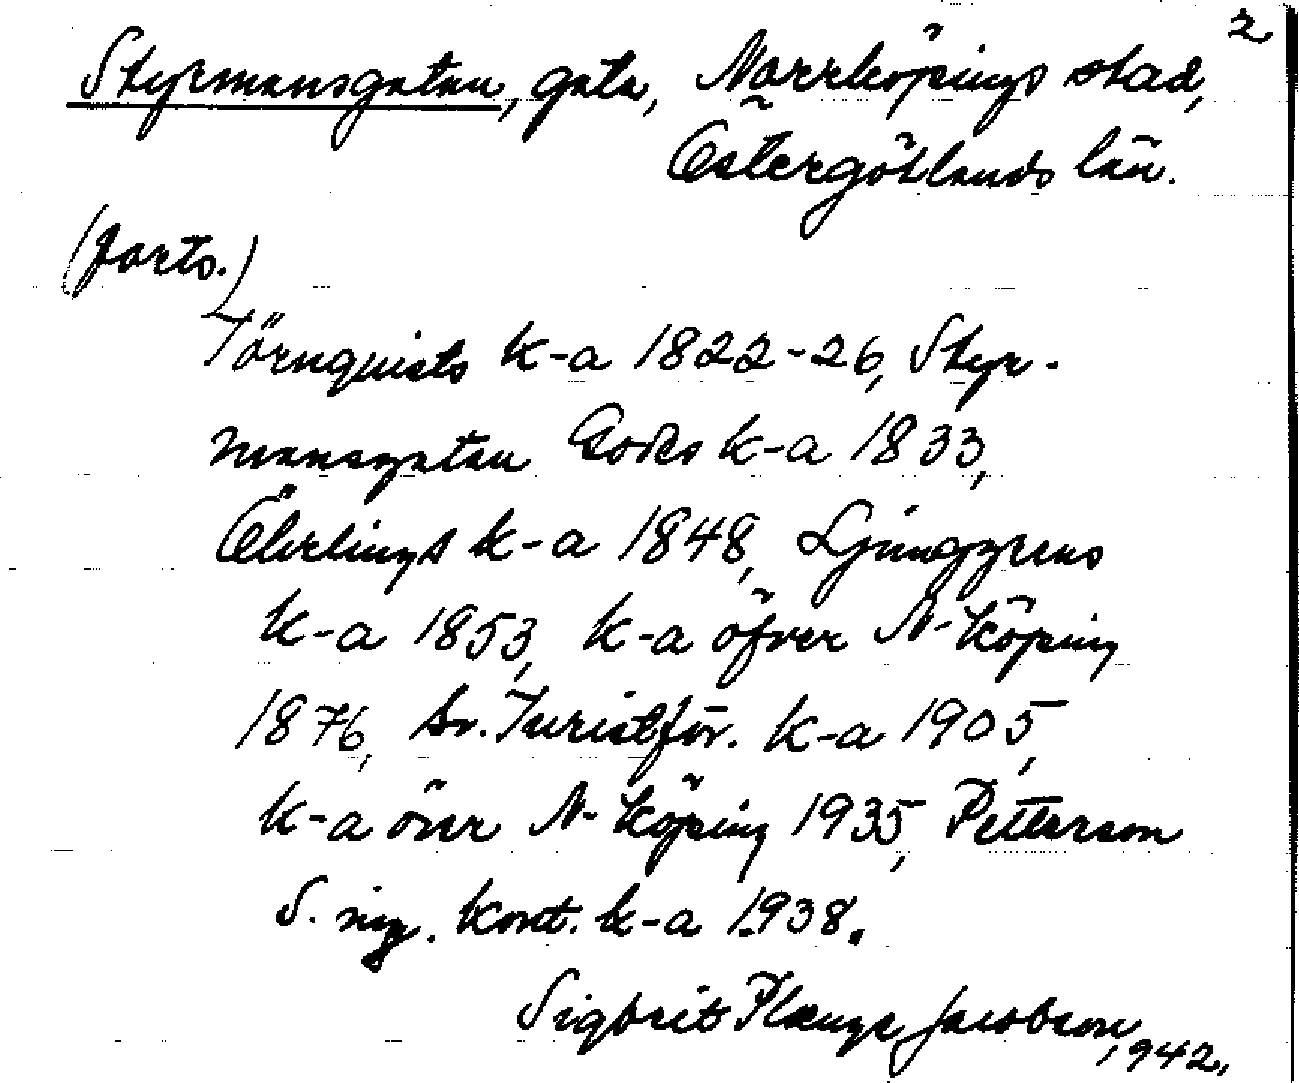 2
Styrmansgatan, gata, Norrköpings stad,
Östergötlands län.
(forts.)
Törnquists k-a 1822-26, Styr-
mansgatan Godes k-a 1833,
Öhrlings k-a 1848, Ljunggrens
k-a 1853, k-a öfver N-köping
1876, Sv. Turistför. k-a 1905,
k-a över N-köping 1935, Petterson
S. ing. kont. k-a 1938.
Sigbrit Plænge Jacobson, 1942.